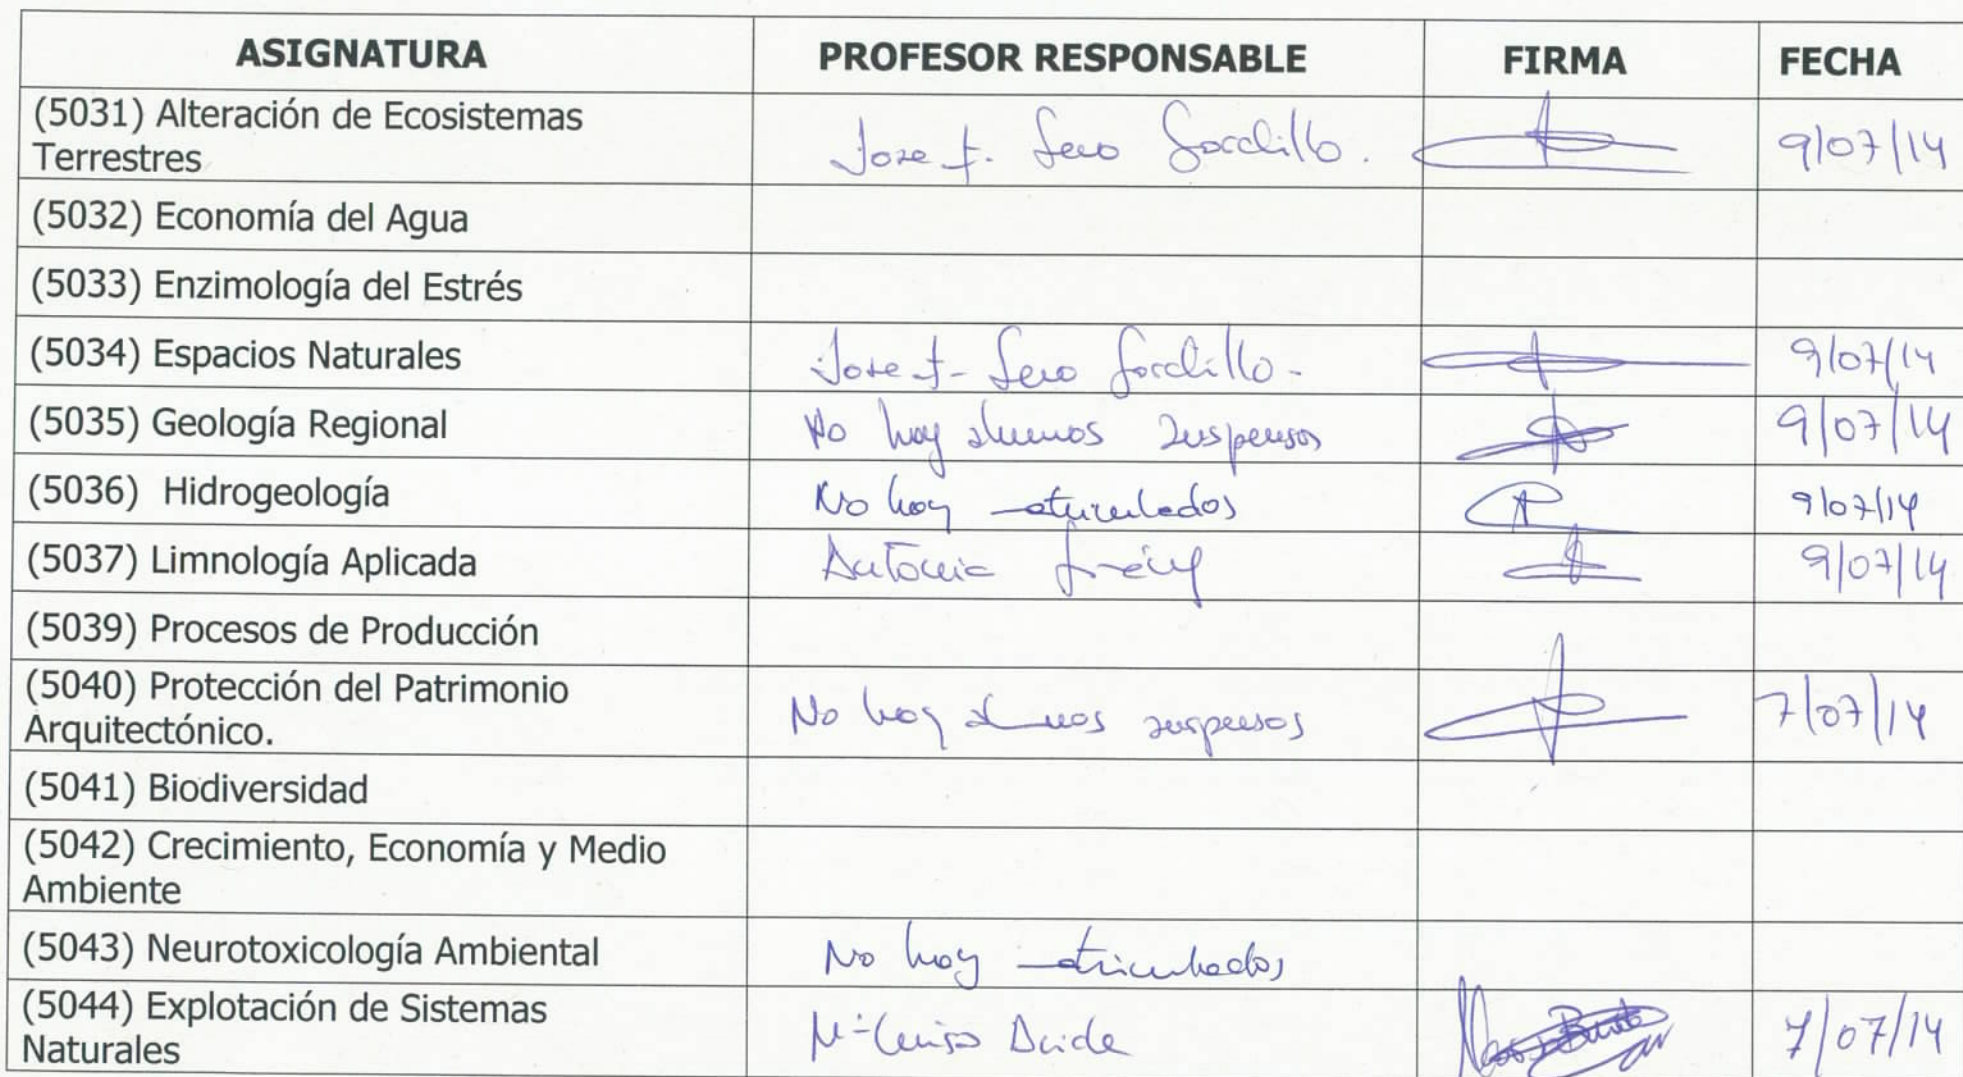 ASIGNATURA PROFESOR RESPONSABLE FIRMA FECHA
(5031) Alteración de Ecosistemas
Terrestres
Jose F. 9/07/14
(5032) Economía del Agua
(5033) Enzimología del Estrés
(5034) Espacios Naturales Jose F. 9/07/14
(5035) Geología Regional No hay alumnos suspensos 9/07/14
(5036) Hidrogeología No hay matriculados 9/07/14
(5037) Limnología Aplicada Antonia 9/07/14
(5039) Procesos de Producción
(5040) Protección del Patrimonio
Arquitectónico.
No hay alumnos suspensos 7/07/14
(5041) Biodiversidad
(5042) Crecimiento, Economía y Medio
Ambiente
(5043) Neurotoxicología Ambiental No hay matriculados
(5044) Explotación de Sistemas
Naturales
7/07/14